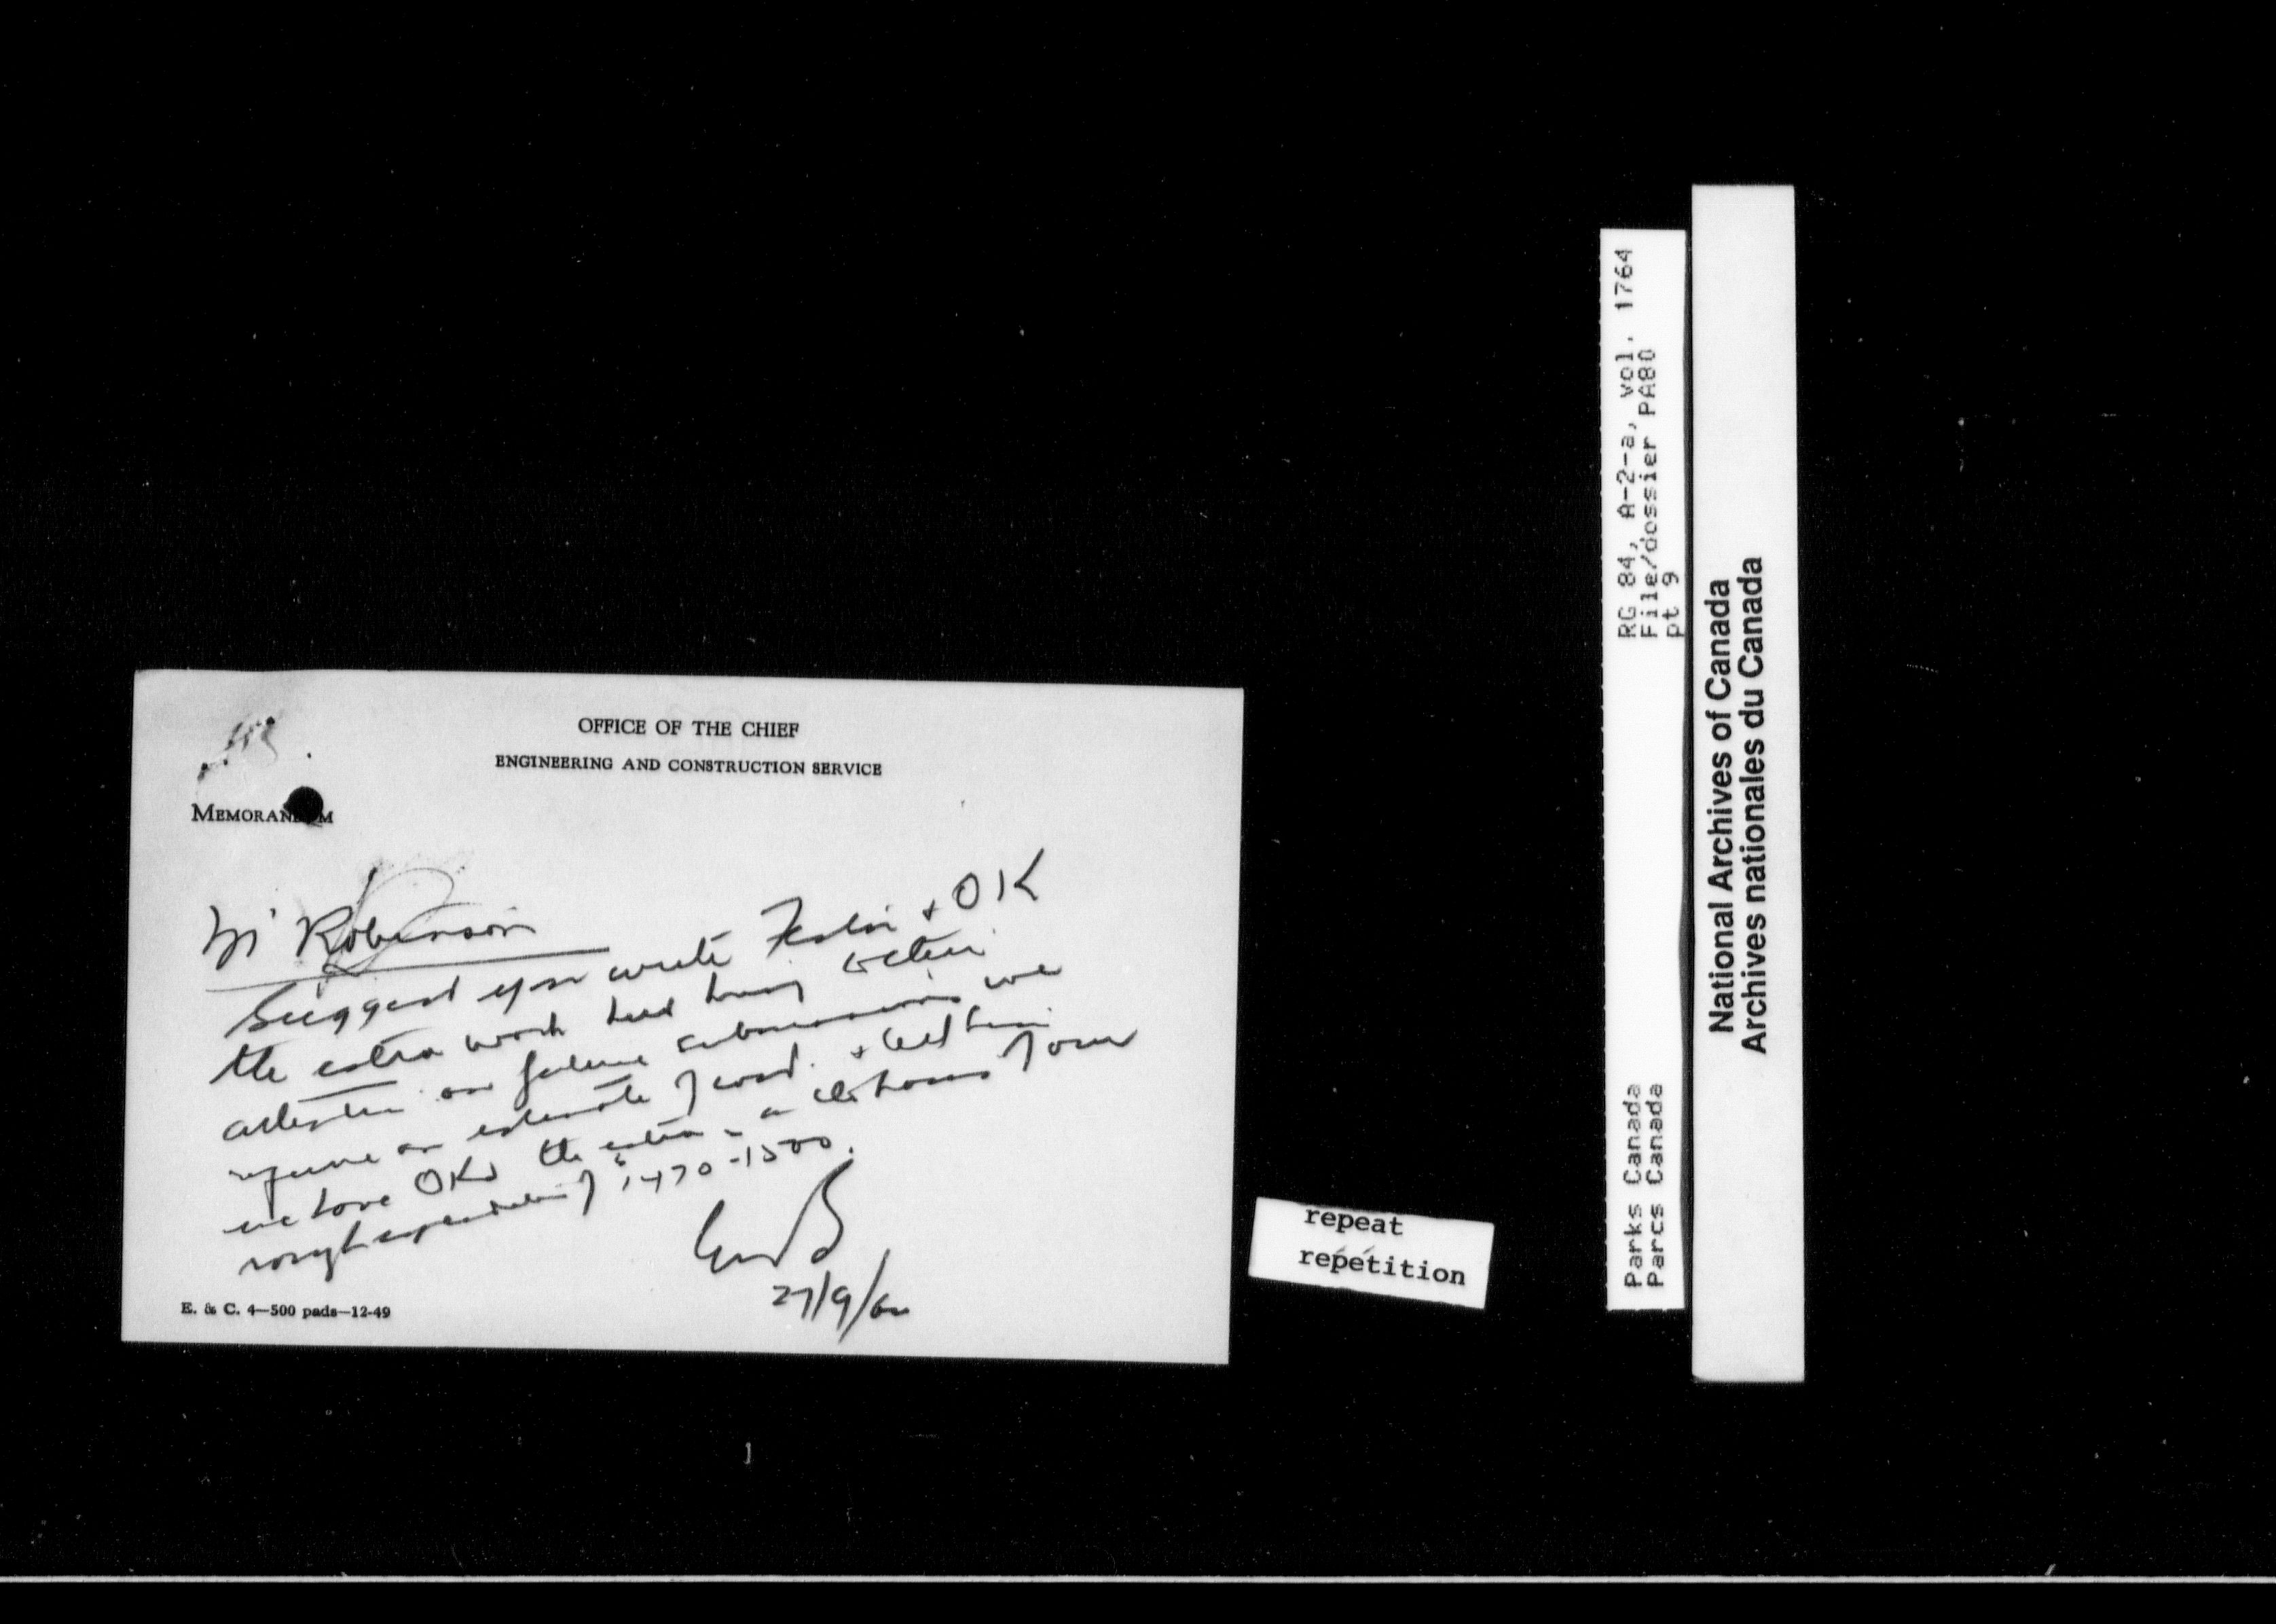 OFFICE OF THE CHIEF
ENGINEERING AND CONSTRUCTION SERVICE
MEMORANDUM
Mr Robinson
Suggest you write + OK
the extra work but
on future submissions we
require an estimate of cost. + tell him
we have OKd the extra on of our
rough 1470-1500.
27/9/60
E. & C. 4—500 pads—12-49
repeat
repétition
RG 84, A-2-a, vol. 1764
File/dossier PA80
pt 9
Parks Canada
Parcs Canada
National Archives of Canada
Archives nationales du Canada